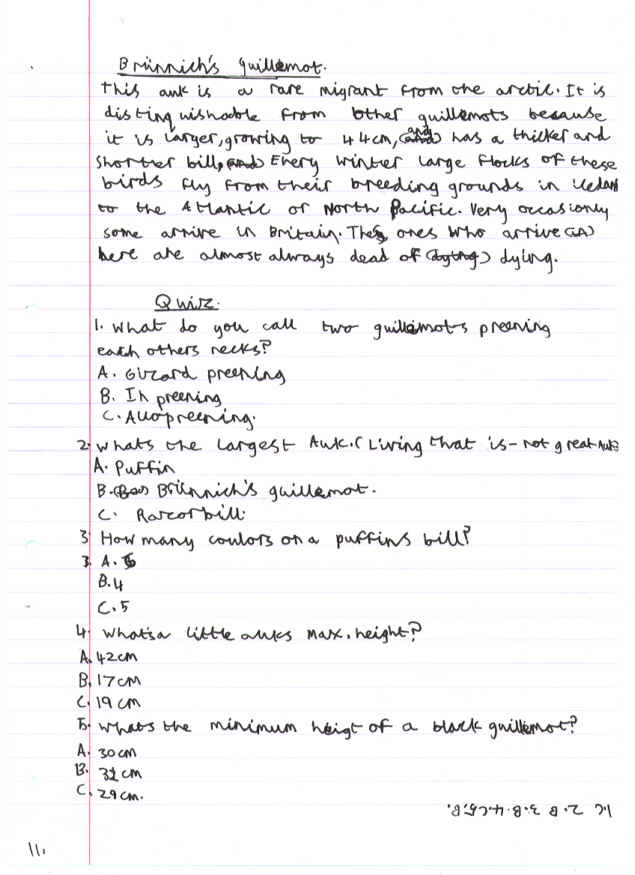 Brünnich's guillemot.
This auk is a rare migrant from the arctic. It is
distinguishable from other guillemots because
it is larger, growing to 44cm, and has a thicker and
shorter bill, Every winter large flocks of these
birds fly from their breeding grounds in Iceland
to the Atlantic or North Pacific. Very occasionly
some arrive in Britain. The ones who arrive
here are almost always dead of (dying) dying.
Quiz.
1. What do you call two guillemots preening
each others necks?
A. Gizard preening
B. In preening
C. Allopreening.
2. whats the largest Auk. (Living that is - not great Auk)
A. Puffin
B. Brünnich's guillemot.
C. Razorbill.
3 How many coulors on a puffins bill?
3. A.
B. 4
C. 5
4. Whats a little auks max. height?
A. 42cm
B. 17cm
C. 19cm
5. Whats the minimum heigt of a black guillemot?
A. 30cm
B. 32cm
C. 29cm.
1.C 2.B 3.B.4.C.5.B.
11.